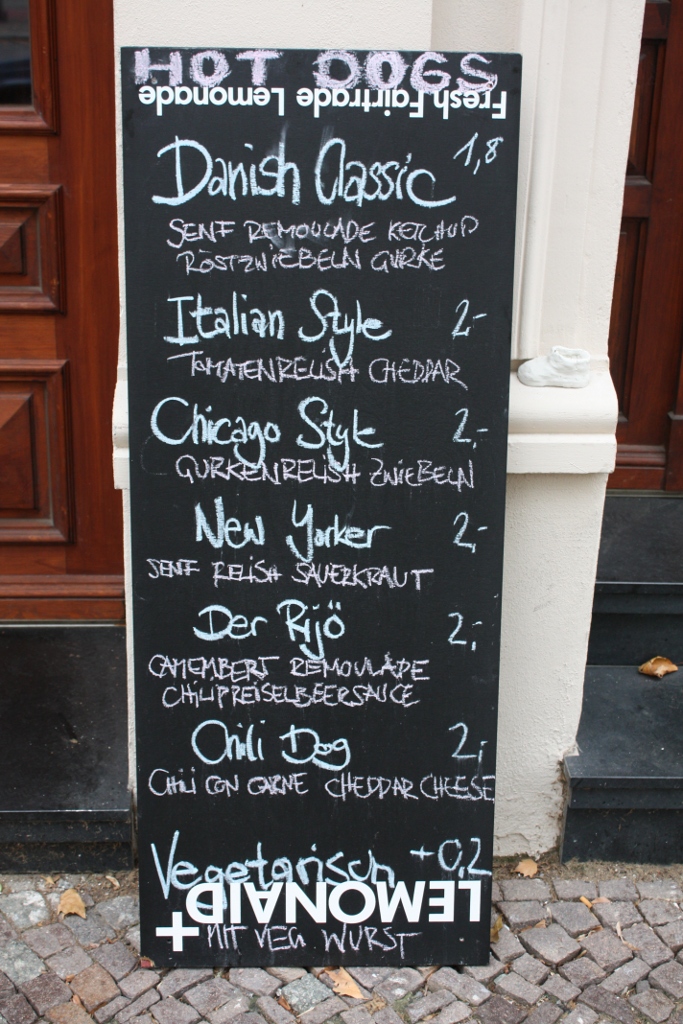 HOT DOGS
Fresh Fairtrade Lemonade
Danish Classic 1,8
SENF REMOULADE KETCHUP
RÖSTZWIEBELN GURKE
Italian Style 2,-
TOMATENRELISH CHEDDAR
Chicago Style 2,-
GURKENRELISH ZWIEBELN
New Yorker 2,-
SENF RELISH SAUERKRAUT
Der Rijö 2,-
CAMEMBERT REMOULADE
CHILIPREISELBEERSAUCE
Chili Dog 2,-
CHILI CON CARNE CHEDDAR CHEESE
Vegetarisch +0,2
LEMONAID+
MIT VEG WURST